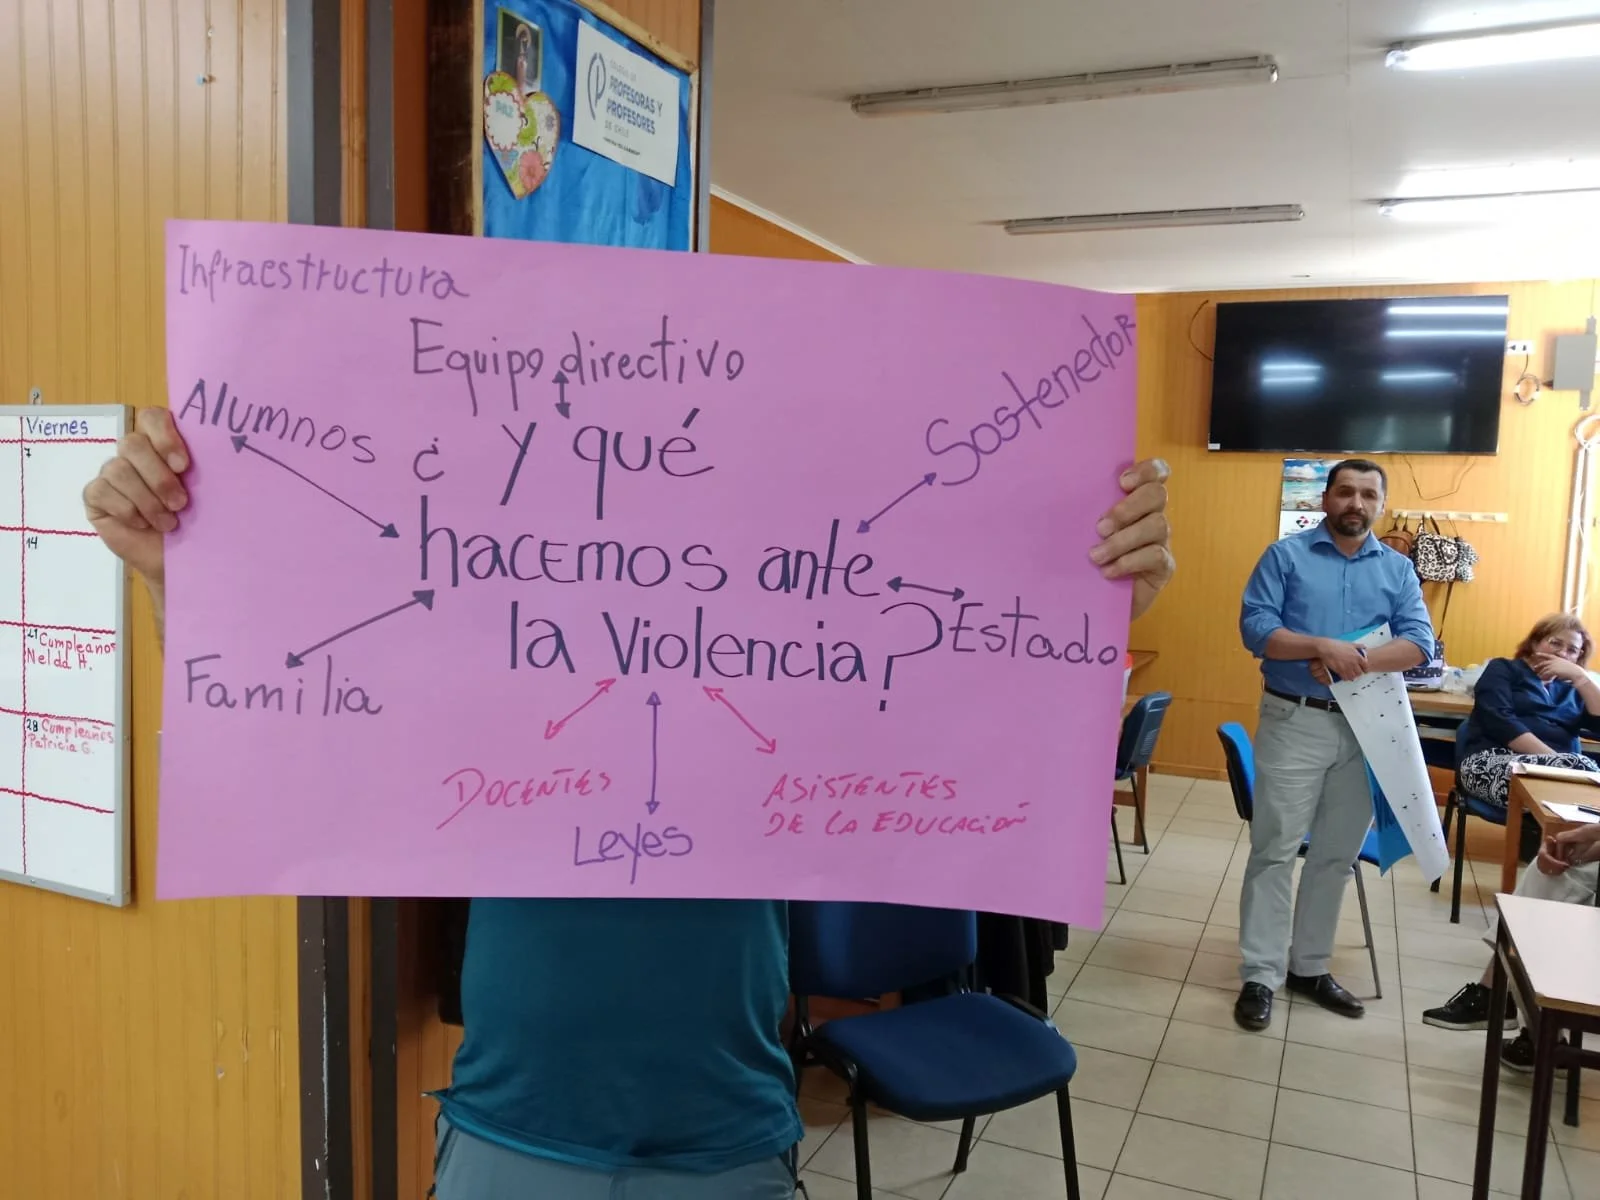 PAZ
COLEGIO DE
PROFESORAS Y
PROFESORES
DE CHILE
Infraestructura
Equipo directivo
Alumnos
Sostenedor
¿ y qué
hacemos ante
la Violencia?
Estado
Familia
DOCENTES
Leyes
ASISTENTES
DE LA EDUCACIÓN
Viernes
7
14
21 Cumpleaños
Nelda H.
28 Cumpleaños
Patricia G.